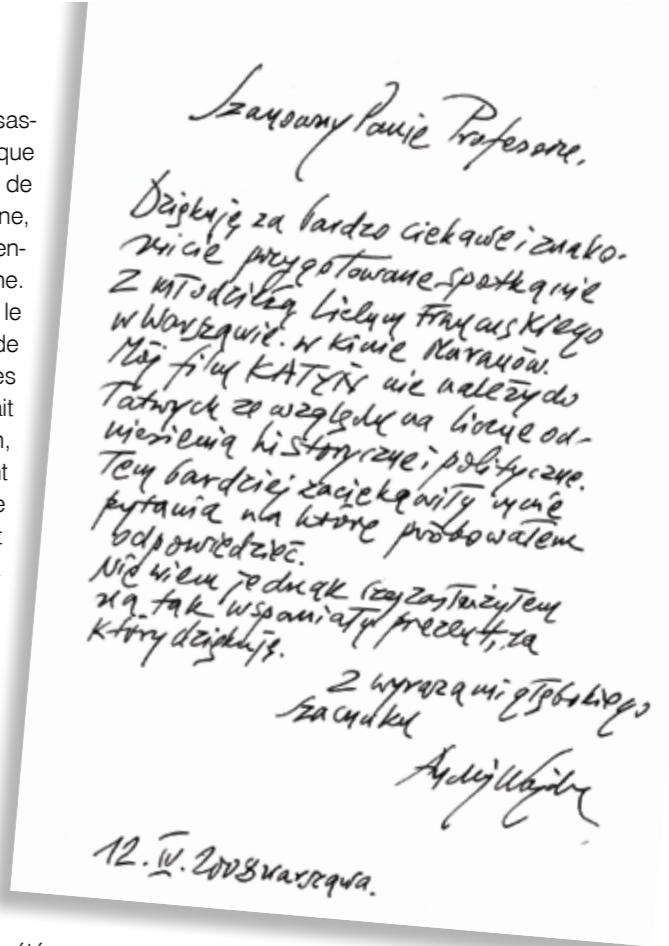 sas-
que
de
ne,
en-
ne.
le
de
es
ait
n,
nt
e
t
été
Szanowny Panie Profesorze,
Dziękuję za bardzo ciekawe i znako-
micie przygotowane spotkanie
Z młodzieżą Liceum Francuskiego
w Warszawie. w Kinie Muranów.
Mój film KATYŃ nie należy do
łatwych ze względu na liczne od-
niesienia historyczne i polityczne.
Tem bardziej zaciekawiły mnie
pytania na które próbowałem
odpowiedzieć.
Nie wiem jednak czy zasłużyłem
na tak wspaniały prezent, za
który dziękuję.
Z wyrazami głębokiego
szacunku
Andrzej Wajda
12. IV. 2008 Warszawa.